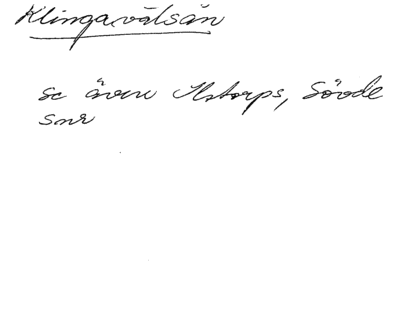 Klingavälsån
se även Ilstorps, Sövde
snr